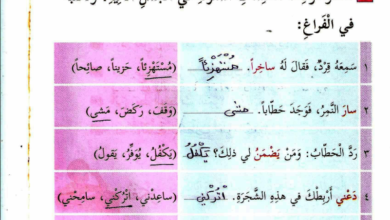 في الْفَراغِ:
١ سَمِعَهُ قِرْدٌ، فَقالَ لَهُ ساخِراً. مُسْتَهْزِئاً (مُسْتَهْزِئاً، حَزيناً، صائِحاً)
٢ سارَ النَّمِرُ، فَوَجَدَ حَطّاباً. مشى (وَقَفَ، رَكَضَ، مَشى)
٣ رَدَّ الْحَطّابُ: وَمَنْ يَضْمَنُ لي ذلِكَ؟ يَكْفُلُ (يَكْفُلُ، يُوَفِّرُ، يَقولُ)
٤ دَعْني أَرْبِطْكَ في هذِهِ الشَّجَرَةِ. اتْركْني (ساعِدْني، اُتْرُكْني، سامِحْني)